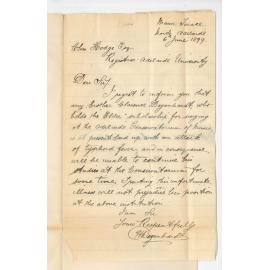 Terrace
North Adelaide
6th June 1899
Chas Hodge Esq.
Registrar Adelaide University
Dear Sir/
I regret to inform you that
my brother Clarence Degenhardt, who
holds the Elder scholarship for singing
at the Adelaide Conservatorium of Music, is
at present laid up with an attack
of Typhoid fever, and in consequence
will be unable to continue his
studies at the Conservatorium for
some time. Trusting this unfortunate
illness will not prejudice his position
at the above institution
I am Sir
Yours Respectfully
Degenhardt